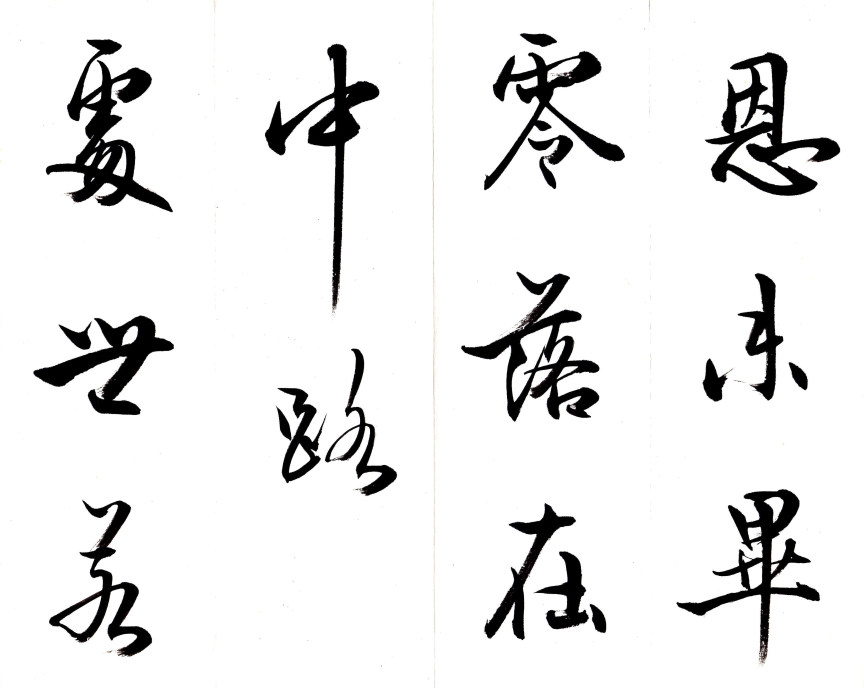 恩未畢
零落在
中路
處世若